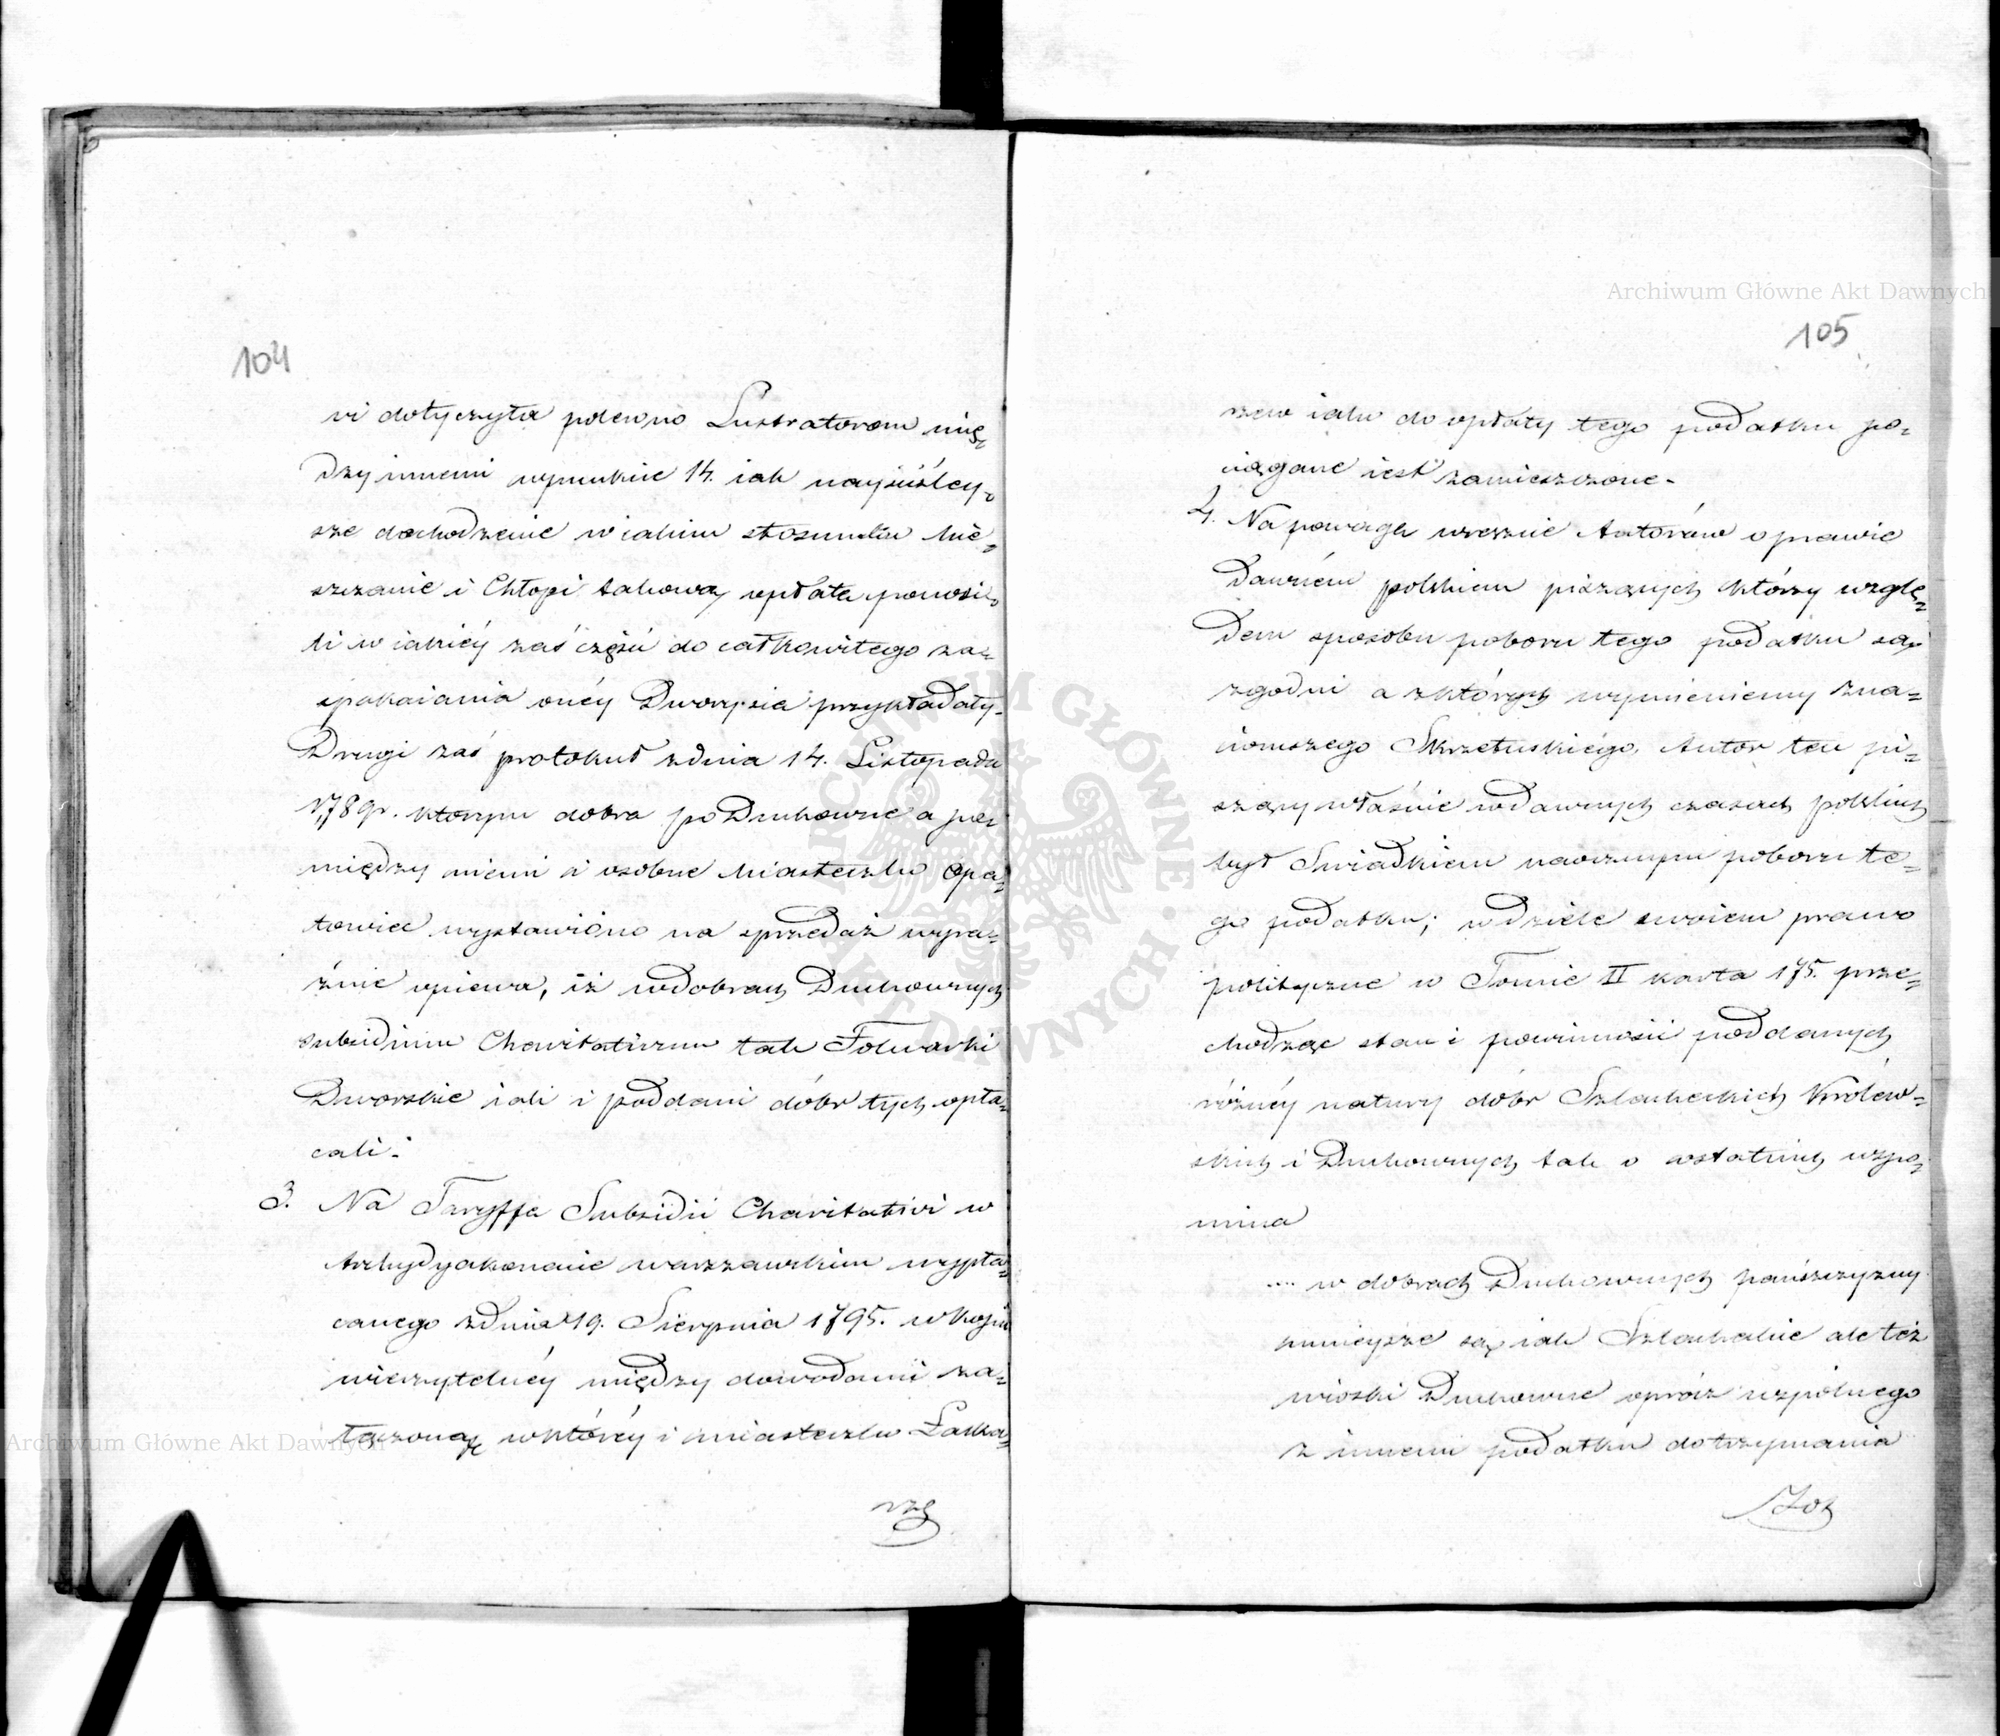 104
vi dotyczyła polecono Lustratorom mię=
dzy innemi w punkcie 14. iak nayściśley=
sze dochodzenie w iakim stosunku Mie=
szczanie i Chłopi takową opłatę ponosi=
li w iakiéy zaś części do całkowitego za=
spokaiania onéy Dwory się przykładały.
Drugi zaś protokuł z dnia 14. Listopada
1789r. którym dobra po Duchowne a po=
między niemi i osobne Miasteczko Opa=
towiec wystawiono na sprzedaż wyra=
źnie opiewa, iż w dobrach Duchownych
subsidium Charitativum tak Folwarki
Dworskie iak i poddani dóbr tych opła=
cali.
3. Na Taryffę Subsidii Charitativi w
Archydyakonacie warszawskim wypła=
canego z dnia 19. Sierpnia 1795. w kopii
wierzytelnéy między dowodami za=
łączoną w któréy i miasteczko Latka=
rzew iako do opłaty tego podatku po=
ciągane iest zamieszczone.
105
4. Na powagę wreszcie Autorów o prawie
dawném polskiem piszących którzy wzglę=
dem sposobu poboru tego podatku są
zgodni a z których wymieniemy zna=
iomszego Skrzetuskiégo. Autor ten pi=
szący właśnie w dawnych czasach polskich
był Świadkiem naocznym poboru te=
go podatku; w dziele swoiem prawo
polityczne w Tomie II karta 175. prze=
chodząc stan i powinności poddanych
różnéy natury dóbr Szlacheckich Królew=
skich i Duchownych tak o ostatnich wspo=
mina
.... w dobrach Duchownych pańszczyzny
mnieysze są iak Szlacheckie ale też
wioski Duchowne oprócz wspólnego
z innemi podatku dotrzymania
Archiwum Główne Akt Dawnych
Archiwum Główne Akt Dawnych
ARCHIWUM GŁÓWNE AKT DAWNYCH